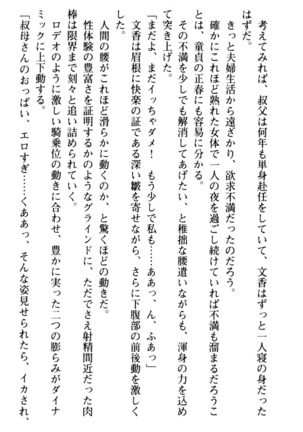 考えてみれば、叔父は何年も単身赴任をしていて、文香はずっと一人寝の身だった
はずだ。
きっと夫婦生活から遠ざかり、欲求不満だったのだろう。
確かにこれほど熟れた女体で一人の夜を過ごし続けていれば不満も溜まるだろうこ
とは、童貞の正春にも容易に分かる。
その不満を少しでも解消してあげたい、と稚拙な腰遣いながらも、渾身の力を込め
て突き上げた。
「まだよ、まだイッちゃダメ！　もう少しで私も……ああっ、ん、ふあっ」
文香は眉根に快楽の証である深い皺を寄せながら、さらに下腹部の前後動を激しく
した。
人間の腰がこれほど滑らかに動くのか、と驚くほどの動きだ。
性体験の豊富さを証明するかのようなグラインドに、ただでさえ射精間近だった肉
棒は限界まで刻々と追い詰められていく。
ロデオのように激しい騎乗位の動きに合わせ、豊かに実った二つの膨らみがダイナ
ミックに上下動する。
「叔母さんのおっぱい、エロすぎ……くああっ、そんな姿見せられたら、イカされ、